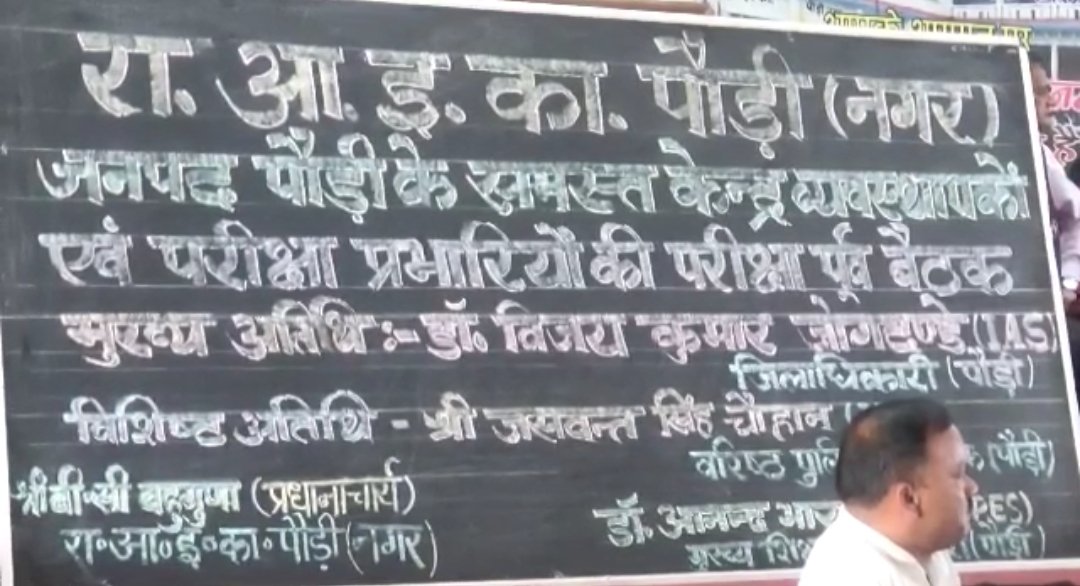 रा. आ. इ. का. पौड़ी (नगर)
जनपद पौड़ी के समस्त केन्द्र व्यवस्थापकों
एवं परीक्षा प्रभारियों की परीक्षा पूर्व बैठक
मुख्य अतिथि :- डॉ. विजय कुमार जोगदण्डे (IAS)
जिलाधिकारी (पौड़ी)
विशिष्ट अतिथि - श्री जसवन्त सिंह चौहान
वरिष्ठ (पौड़ी)
श्री बी॰सी बहुगुणा (प्रधानाचार्य)
रा॰आ॰इ॰का॰ पौड़ी (नगर)
डॉ. आनन्द
मुख्य (पौड़ी)